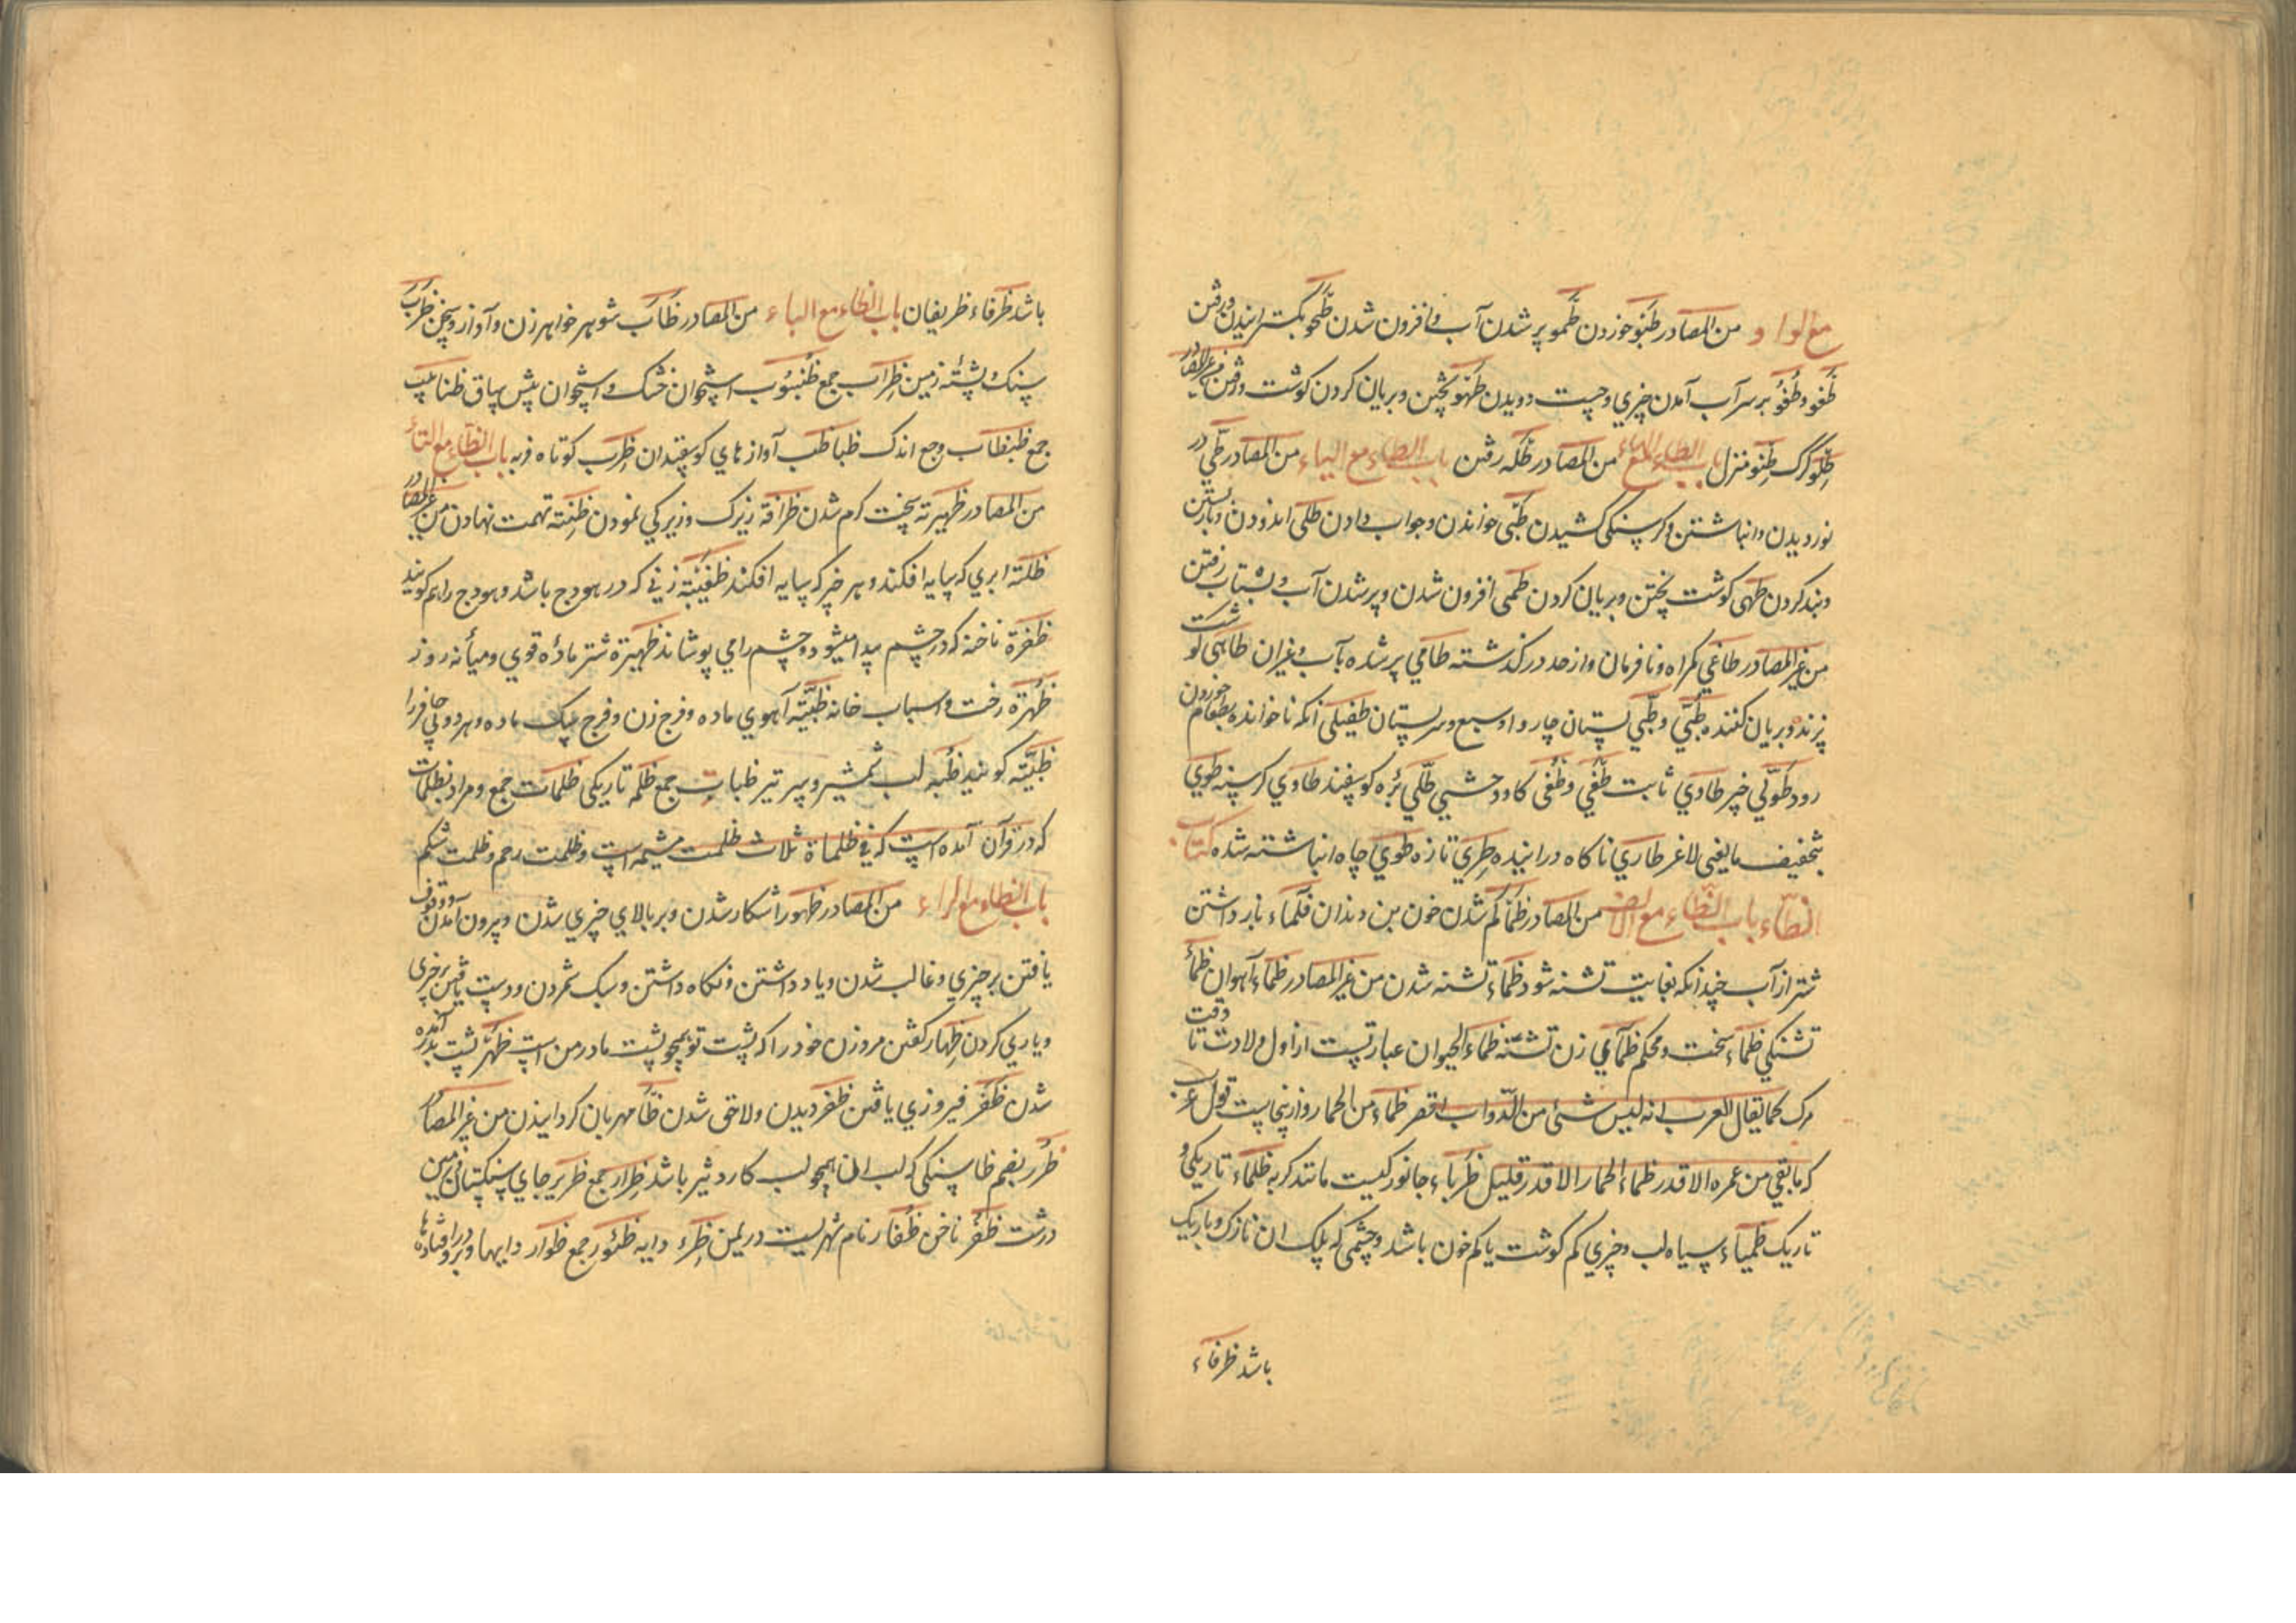 مع الواو من المصادر طبو خوردن طمو پر شدن آب و افزون شدن طحو بگسترانیدن و رفتن
طفو و طفو بر سر آب آمدن چیزی و جست و دویدن طهو پختن و بریان کردن گوشت و رفتن من غیر المصادر
طلو گرگ طنو منزل باب الطاء مع الهاء من المصادر طله رفتن باب الطاء مع الیاء من المصادر طی در
نوردیدن و انباشتن و گرسنگی کشیدن طبی خواندن و جواب دادن طلی اندودن و باز بستن
و بند کردن طهی گوشت پختن و بریان کردن طمی افزون شدن و پر شدن آب و بشتاب رفتن
من غیر المصادر طاغی گمراه و نافرمان و از حد در گذشته طامی پر شده بآب و غیر ان طاهی گوشت
پزنده و بریان کننده طبی و طبی پستان چاروا و سبع و سر پستان طفیلی آنکه ناخوانده بطعام خوردن
رود طوی خبر طاوی ثابت طغی و طغی گاو وحشی طلی بره گوسفند طاوی گرسنه طوی
بتخفیف ما یغنی لاغر طاری ناگاه در اینده طری تازه طوی چاه انباشته شده کتاب
الظاء باب الظاء مع الالف من المصادر ظما کم شدن خون بن دندان ظماء باز داشتن
شتر از آب چندانکه بغایت تشنه شود ظماء تشنه شدن من غیر المصادر ظماء آهوان ظما
تشنگی ظماء سخت و محکم ظمآی زن تشنه ظماء الحیوان عبارتست از اول ولادت تا وقت
مرگ کما یقال للعرب انه لیس شئ من الدواب اقصر ظماء من الحمار و ازینجاست قول عرب
که ما بقی من عمره الا قدر ظماء الحمار الا قدر قلیل ظرباء جانورکیست مانند گربه ظلماء تاریکی و
تاریک ظمیاء سیاه لب و چیزی کم گوشت یا کم خون باشد و چشمی که پلک ان نازک و باریک
باشد ظرفاء
باشد ظرفاء ظریفان باب الظاء مع الباء من المصادر ظاب شوهر خواهر زن و آواز و سخن ظرب
سنگ و پشته زمین ظراب جمع ظنبوب استخوان خشک و استخوان پیش ساق ظنابیب
جمع ظبظاب وجع اندک ظباظب آوازهای گوسفندان ظرب کوتاه فربه باب الظاء مع التاء
من المصادر ظهیرته سخت گرم شدن ظرافة زیرک و زیرکی نمودن ظنته تهمت نهادن من غیر المصادر
ظلته ابری که سایه افکند و هر چیز که سایه افکند ظعینته زنی که در هودج باشد و هودج را هم گویند
ظفرة ناخنه که در چشم پیدا میشود و چشم را می پوشاند ظهیرة شتر مادۀ قوی و میانه روز
ظهرة رخت و اسباب خانه ظبیته آهوی ماده و فرج زن و فرج سگ ماده و هر دو پی حافر را
ظبیته گویند ظبه لب شمشیر و سر تیر ظبات جمع ظلمه تاریکی ظلمات جمع و مراد بظلمات
که در قرآن آمده است که فی ظلماة ثلاث ظلمت مشیمه است و ظلمت رحم و ظلمت شکم
باب الظاء مع الراء من المصادر ظهور اشکار شدن و بر بالای چیزی شدن و بیرون آمدن و وقوف
یافتن بر چیزی و غالب شدن و یاد داشتن و نگاه داشتن و سبک شمردن و دست یافتن بر چیزی
و یاری کردن ظهار گفتن مرد زن خود را که پشت تو همچو پشت مادر من است ظهر پشت بدر آمده
شدن ظفر فیروزی یافتن ظفر دیدن و لاحق شدن ظأر مهربان گردانیدن من غیر المصادر
ظرر بضم ظا سنگی که لب ان همچو لب کارد تیز باشد ظرار جمع ظریر جای سنگستان و زمین
درشت ظفر ناخن ظفار نام شهریست در یمن ظئر دایه ظئور جمع ظوار دایها و